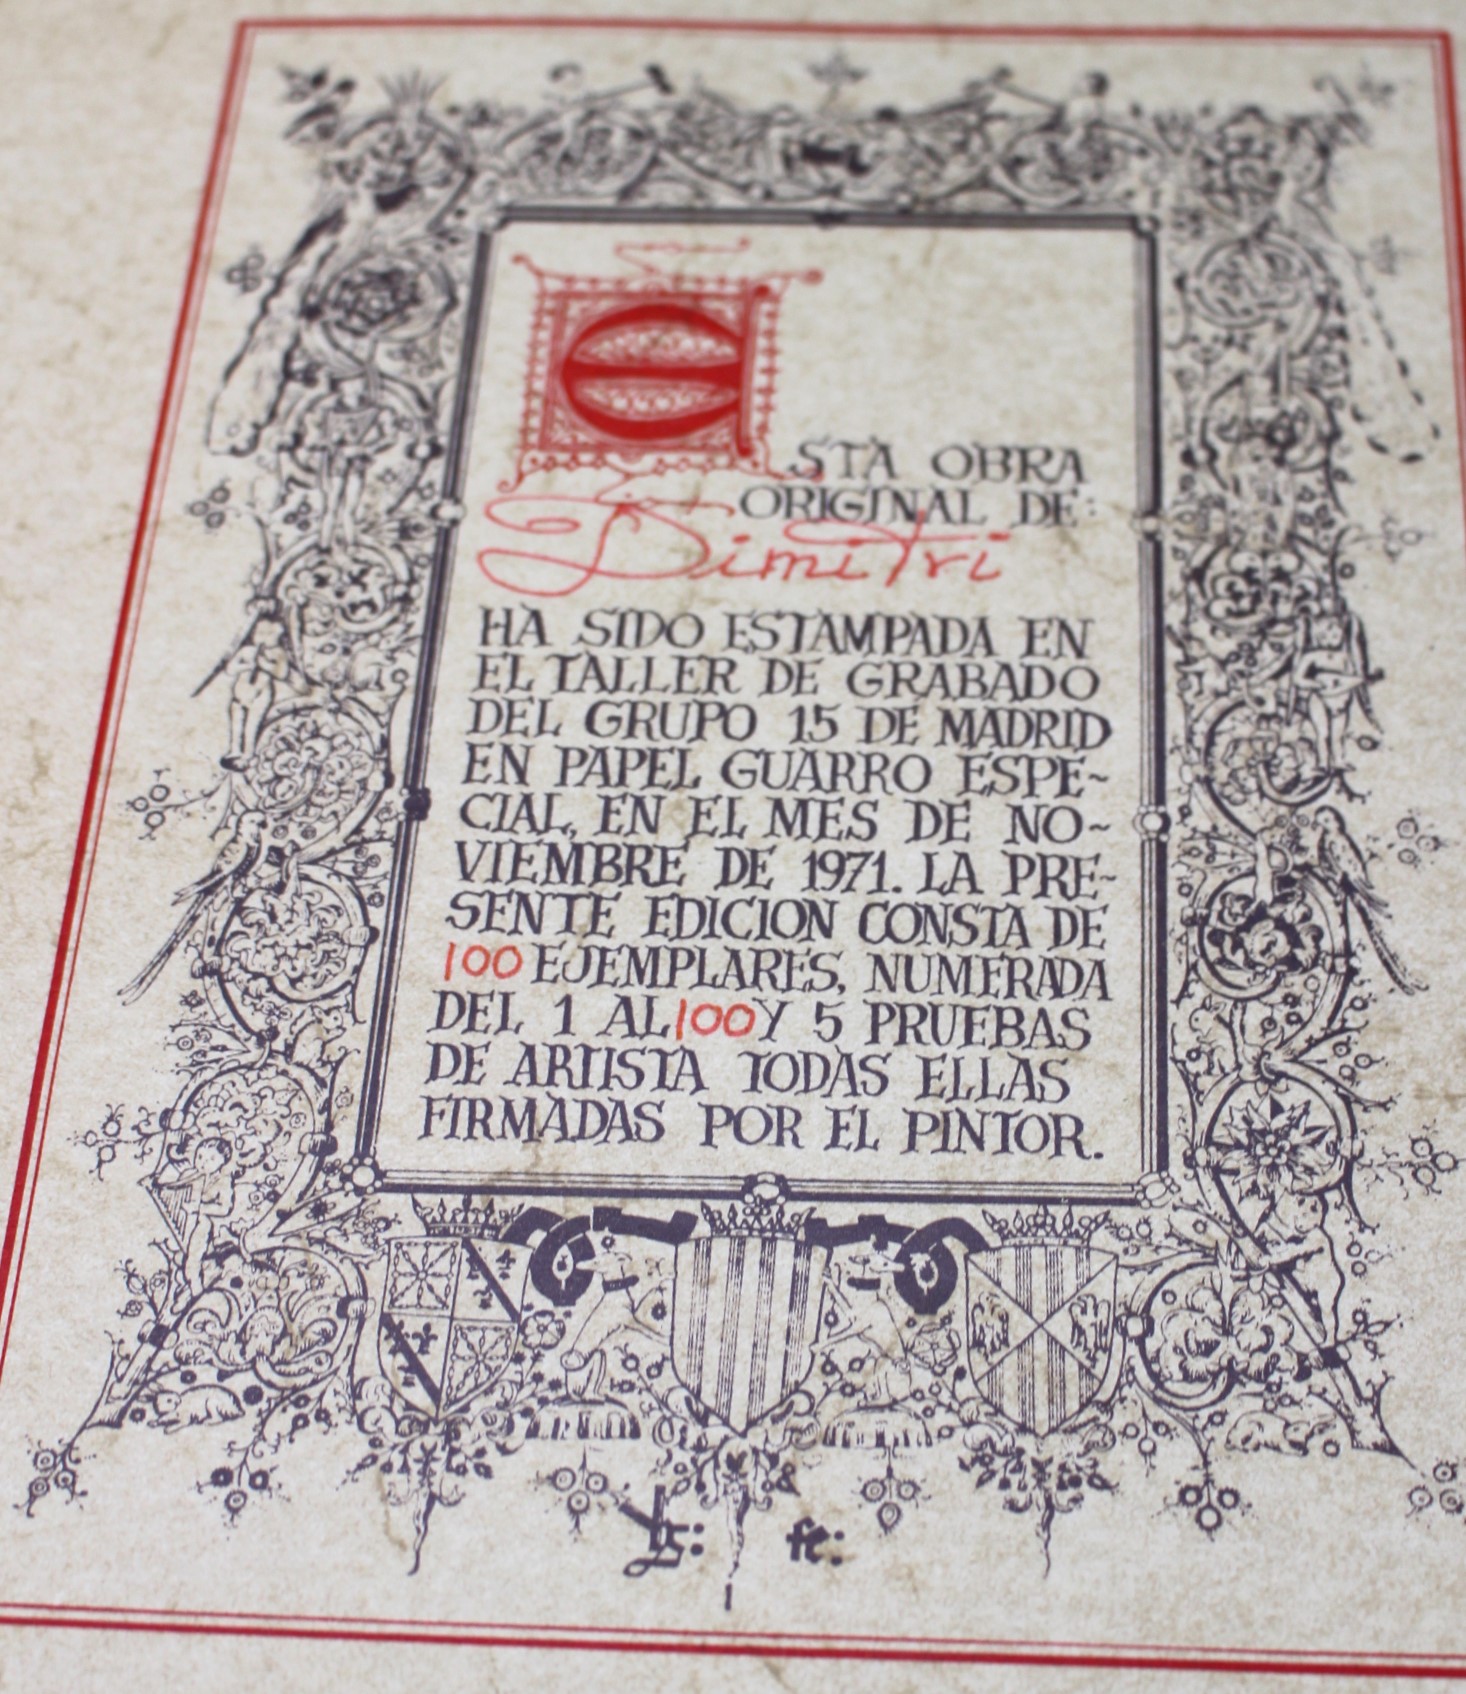 ESTA OBRA
ORIGINAL DE:
Dimitri
HA SIDO ESTAMPADA EN
EL TALLER DE GRABADO
DEL GRUPO 15 DE MADRID
EN PAPEL GUARRO ESPE-
CIAL, EN EL MES DE NO-
VIEMBRE DE 1971. LA PRE-
SENTE EDICION CONSTA DE
100 EJEMPLARES, NUMERADA
DEL 1 AL 100 Y 5 PRUEBAS
DE ARTISTA TODAS ELLAS
FIRMADAS POR EL PINTOR.